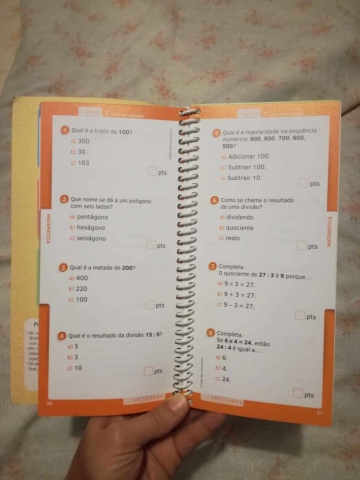 1 Qual é o triplo de 100?
a) 300
b) 30
c) 103
pts
2 Que nome se dá a um polígono
com seis lados?
a) pentágono
b) hexágono
c) seiságono
pts
3 Qual é a metade de 200?
a) 400
b) 220
c) 100
pts
4 Qual é o resultado da divisão 15 : 5?
a) 5
b) 3
c) 10
pts
MATEMÁTICA
5 Qual é a regularidade na sequência
numérica: 900, 800, 700, 600,
500?
a) Adicionar 100.
b) Subtrair 100.
c) Subtrair 10.
pts
6 Como se chama o resultado
de uma divisão?
a) dividendo
b) quociente
c) resto
pts
7 Completa.
O quociente de 27 : 3 é 9 porque...
a) 9 × 3 = 27.
b) 9 + 3 = 27.
c) 9 – 3 = 27.
pts
8 Completa.
Se 6 × 4 = 24, então
24 : 4 é igual a...
a) 6.
b) 4.
c) 24.
pts
MATEMÁTICA